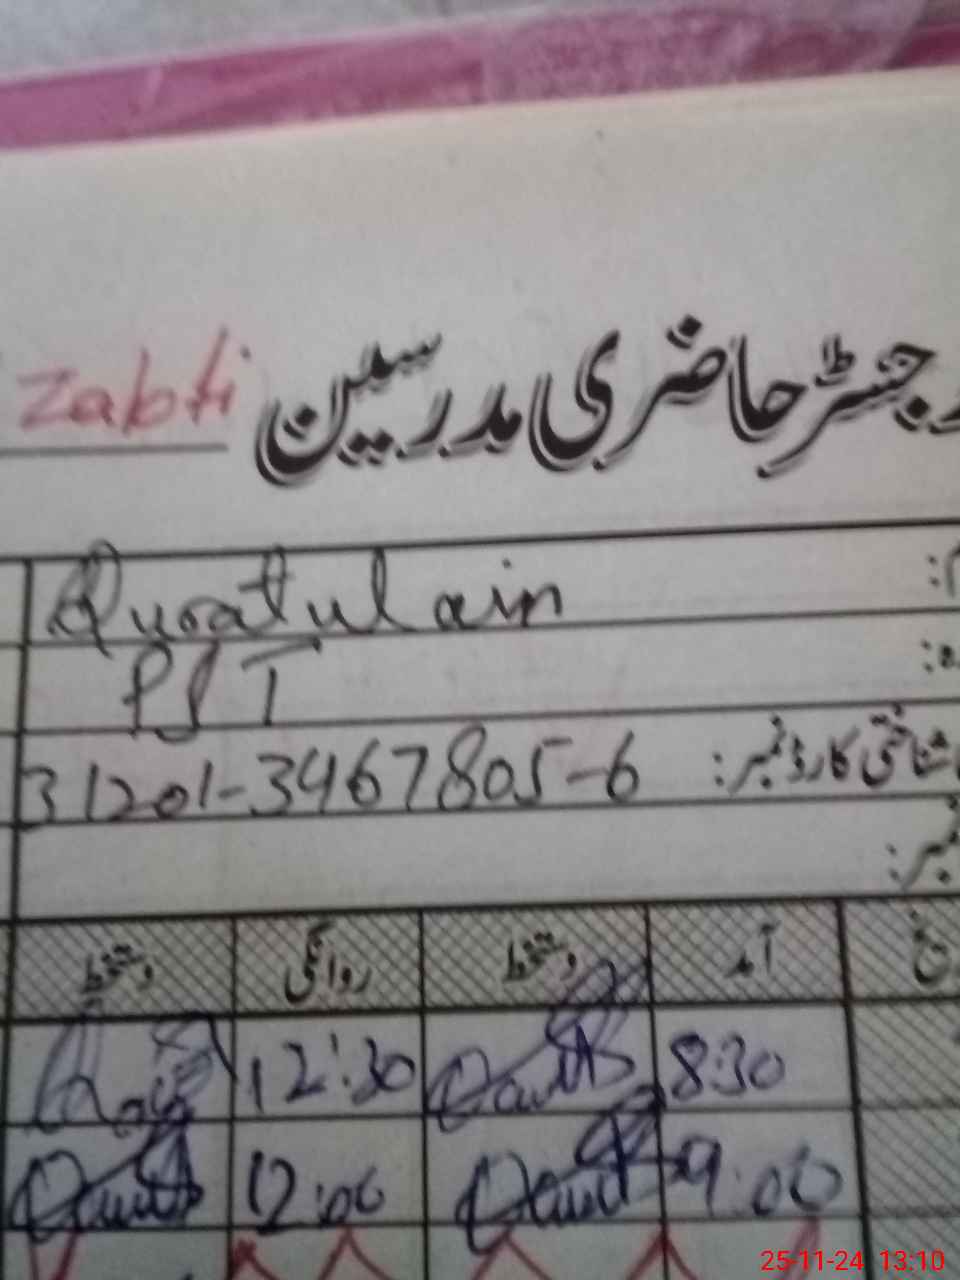 رجسٹر حاضری مدرسین Zabti
Quratulain
PST
شناختی کارڈ نمبر: 31201-3467805-6
نمبر:
آمد دستخط روانگی دستخط
8:30 12:30
9:00 12:00
25-11-24 13:10